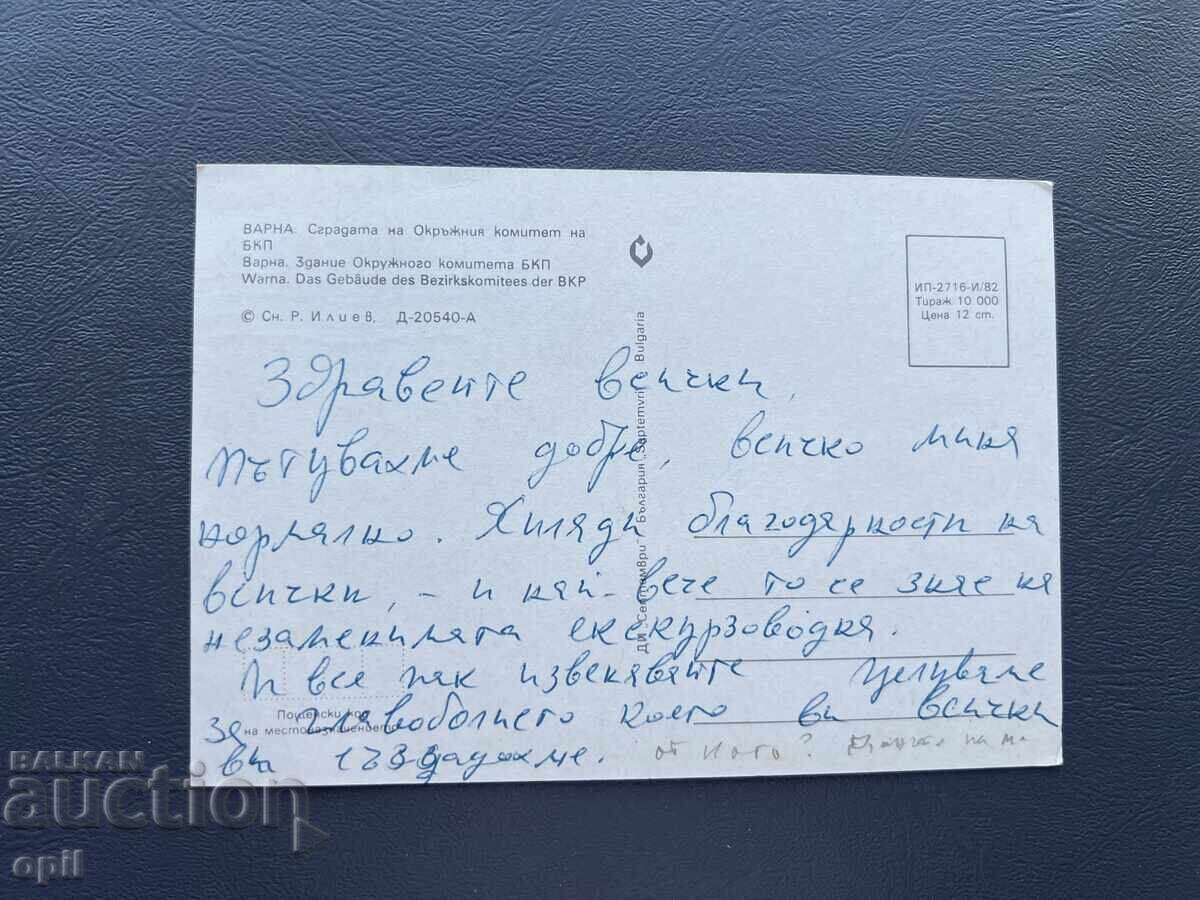 ВАРНА. Сградата на Окръжния комитет на
БКП
Варна. Здание Окружного комитета БКП
Warna. Das Gebäude des Bezirkskomitees der BKP
© Сн. Р. Илиев, Д-20540-А
ДИ „Септември“ България „Septemvri“ Bulgaria
ИП-2716-И/82
Тираж 10 000
Цена 12 ст.
Здравейте всички,
Пътувахме добре, всичко мина
нормално. Хиляди благодарности на
всички, - и най-вече то се знае на
незаменимята екскурзоводка.
И все пак извенявайте
за главоболието което
ви създадохме.
Целуваме
ви всички
от кого?
Пощенски код
на местоназначението
BALKAN
auction
opil